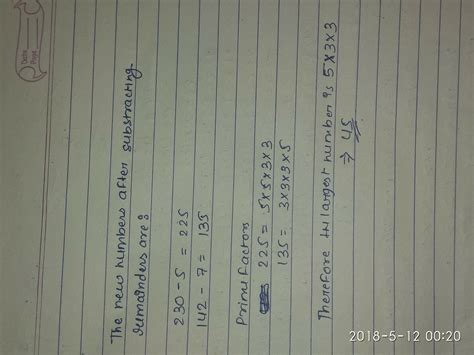 Date
Page
The new numbers after substracting
remainders are :
230 - 5 = 225
142 - 7 = 135
Prime factors
225 = 5 × 5 × 3 × 3
135 = 3 × 3 × 3 × 5
Therefore the largest number is 5 × 3 × 3
⇒ 45
2018-5-12 00:20